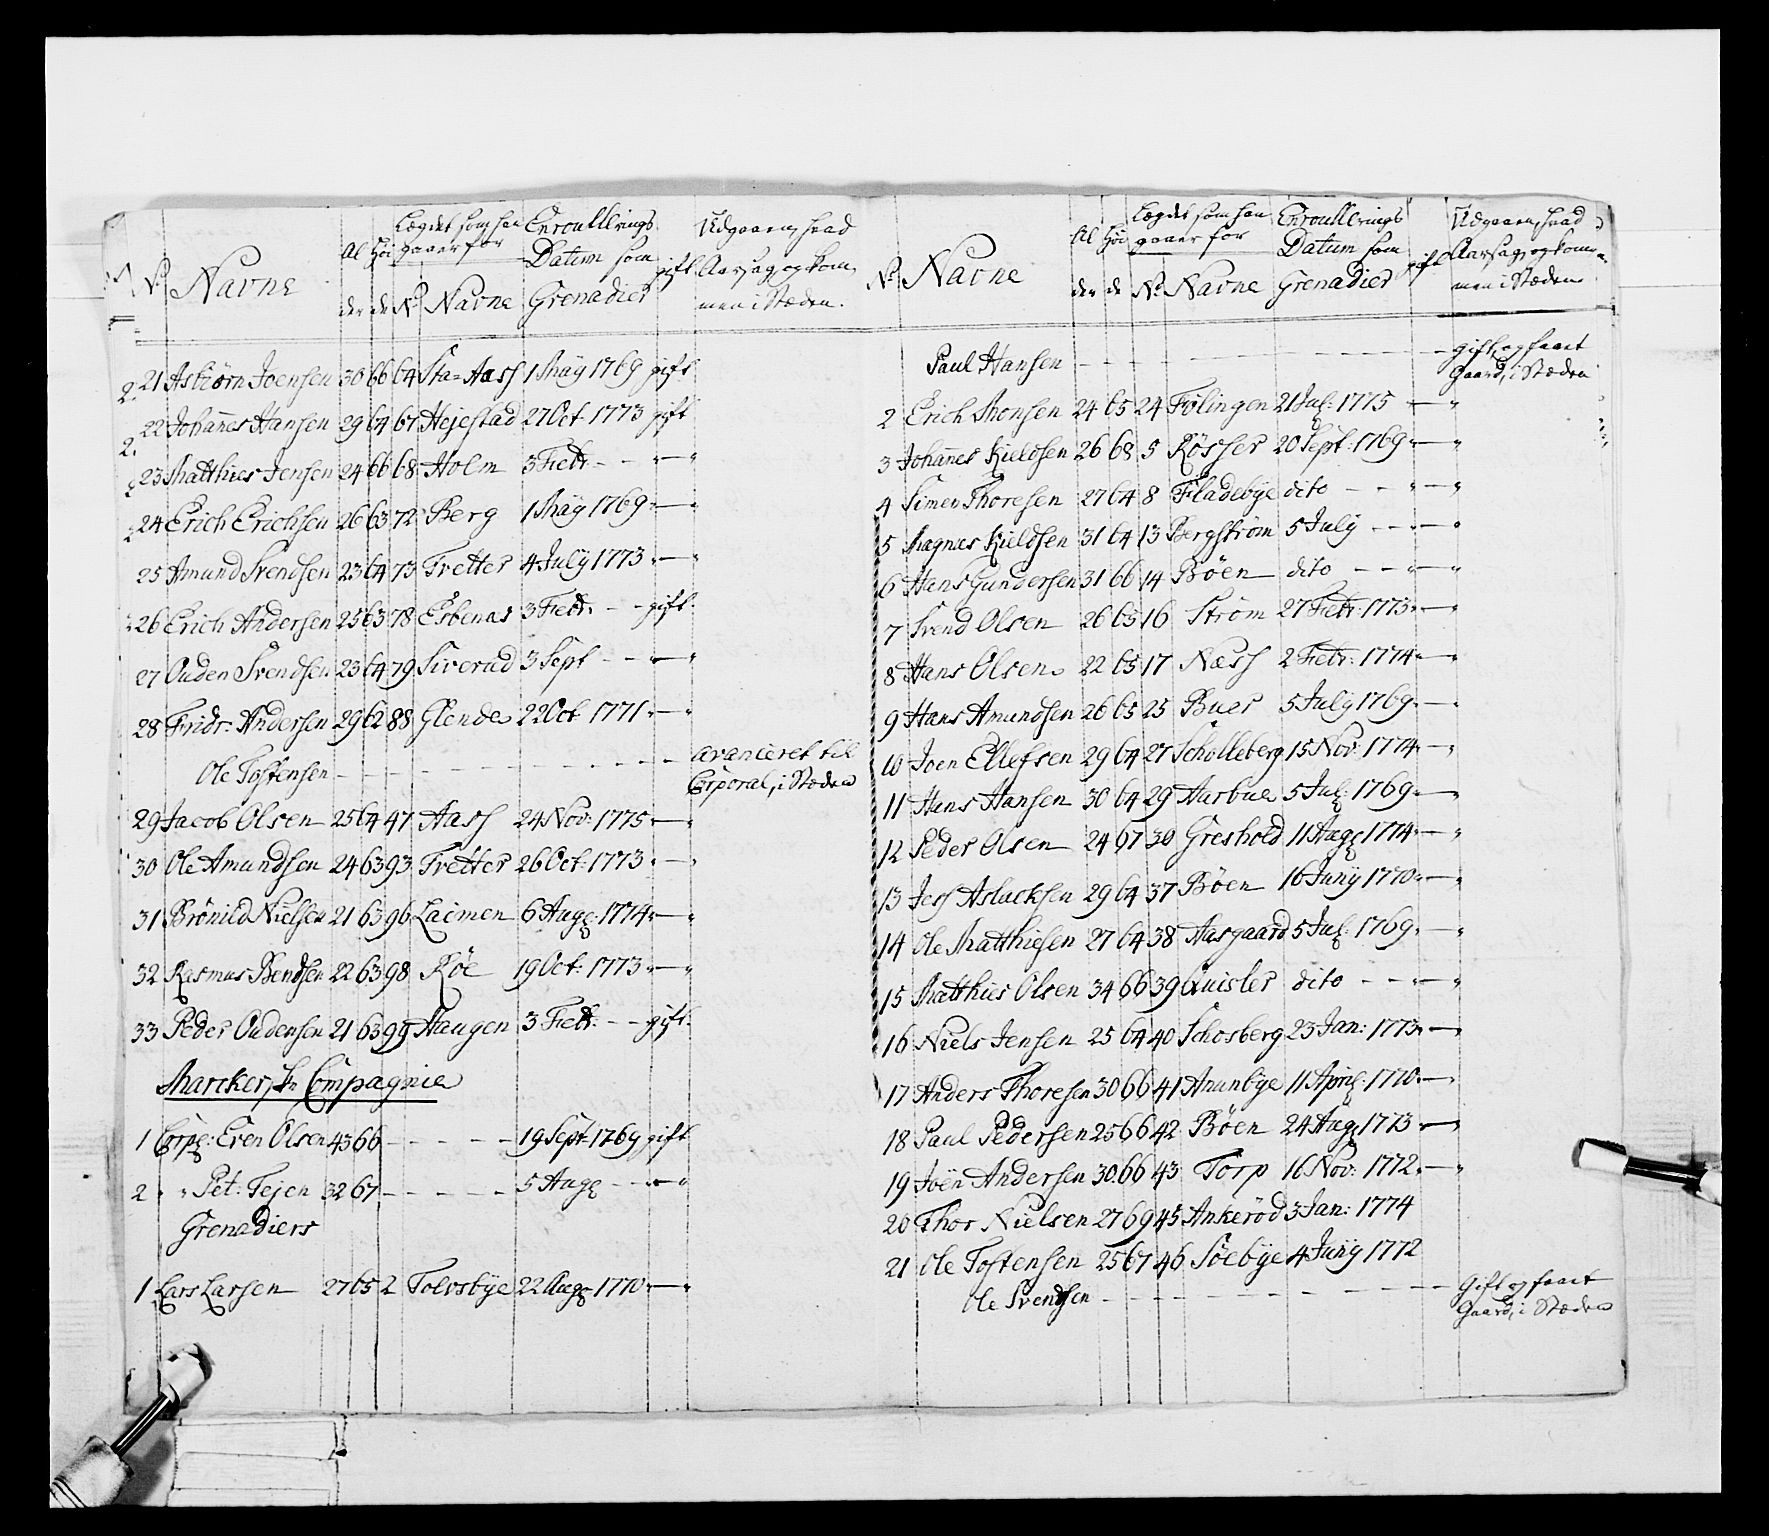 No Navne Alder Høide Lægdet som han gaaer for No Navne Enroullerings Datum som Grenadier gift Udgaaen, hvad Aarsag, og kommen i Stæden.
21 Asbiørn Joensen 30 66 64 Aass 1 May 1769 gift
22 Johannes Hansen 29 64 67 Hejestad 27 Oct 1773 gift
23 Matthies Jensen 24 66 68 Holm 3 Febr - - - "
24 Erich Erichsen 26 63 72 Berg 1 May 1769 - "
25 Amund Svendsen 23 64 73 Tretter 4 July 1773 - "
26 Erich Andersen 25 63 78 Esbenas 3 Febr: - - gift
27 Ouden Svendsen 23 64 79 Siverud 3 Sept - - - "
28 Fridr: Andersen 29 62 88 Glende 22 Oct 1771 - "
Ole Tostensen - - - - - - - - - avanceret til
Corporal, i Stæden
29 Jacob Olsen 25 64 47 Aass 24 Nov: 1775 - "
30 Ole Amundsen 24 63 93 Tretter 26 Oct: 1773 - "
31 Brønild Nielsen 21 63 96 Laimen 6 Aug: 1774 - "
32 Rasmus Bendsen 22 63 98 Røe 19 Oct: 1773 - "
33 Peder Oudensen 21 63 99 Haugen 3 Febr: - - gift
Marker, Compagnie
1 Corpr: Even Olsen 43 66 - - - - - 19 Sept 1769 gift
2 " " Pet: Tejen 32 67 - - - - - 5 Aug - - - "
Grenadiers
1 Lars Larsen 27 65 2 Tolvsbye 22 Aug 1770 - "
No Navne Alder Høide Lægdet som han gaaer for No Navne Enroullerings Datum som Grenadier gift Udgaaen, hvad Aarsag, og kommen i Stæden
Paul Hansen - - - - - - - - - gift, og faaet
Gaard, i Stæden
2 Erich Monsen 24 65 24 Følingen 21 Jul: 1775 - "
3 Johannes Kieldsen 26 68 5 Røsser 20 Sept: 1769 - "
4 Simen Thoresen 27 64 8 Fladebye dito - - - "
5 Magnus Kieldsen 31 64 13 Bergstrøm 5 July - - - "
6 Hans Gundersen 31 66 14 Bøen dito - - - "
7 Svend Olsen 26 65 16 Strøm 27 Febr: 1773 - "
8 Hans Olsen 22 65 17 Næss 2 Febr: 1774 - "
9 Hans Amundsen 26 65 25 Buer 5 July 1769 - "
10 Joen Ellefsen 29 64 27 Scholleberg 15 Nov: 1774 - "
11 Hans Hansen 30 64 29 Aarbue 5 Jul: 1769 - "
12 Peder Olsen 24 67 30 Greshold 11 Aug 1774 - "
13 Jens Aslacksen 29 64 37 Bøen 16 Juny 1770 - "
14 Ole Matthiesen 27 64 38 Aasgaard 5 Jul: 1769 - "
15 Matthies Olsen 34 66 39 Quisler dito - - - "
16 Niels Jensen 25 64 40 Schosberg 23 Jan: 1773 - "
17 Anders Thoresen 30 66 41 Anunbye 11 April 1770 - "
18 Paul Pedersen 25 66 42 Bøen 24 Aug 1773 - "
19 Joën Andersen 30 66 43 Torp 16 Nov: 1772 - "
20 Thor Nielsen 27 69 45 Ankerød 3 Jan: 1774
21 Ole Tostensen 25 67 46 Søebye 4 Juny 1772
Ole Svendsen - - - - - - - - - Gift og faaet
Gaard, i Stæden